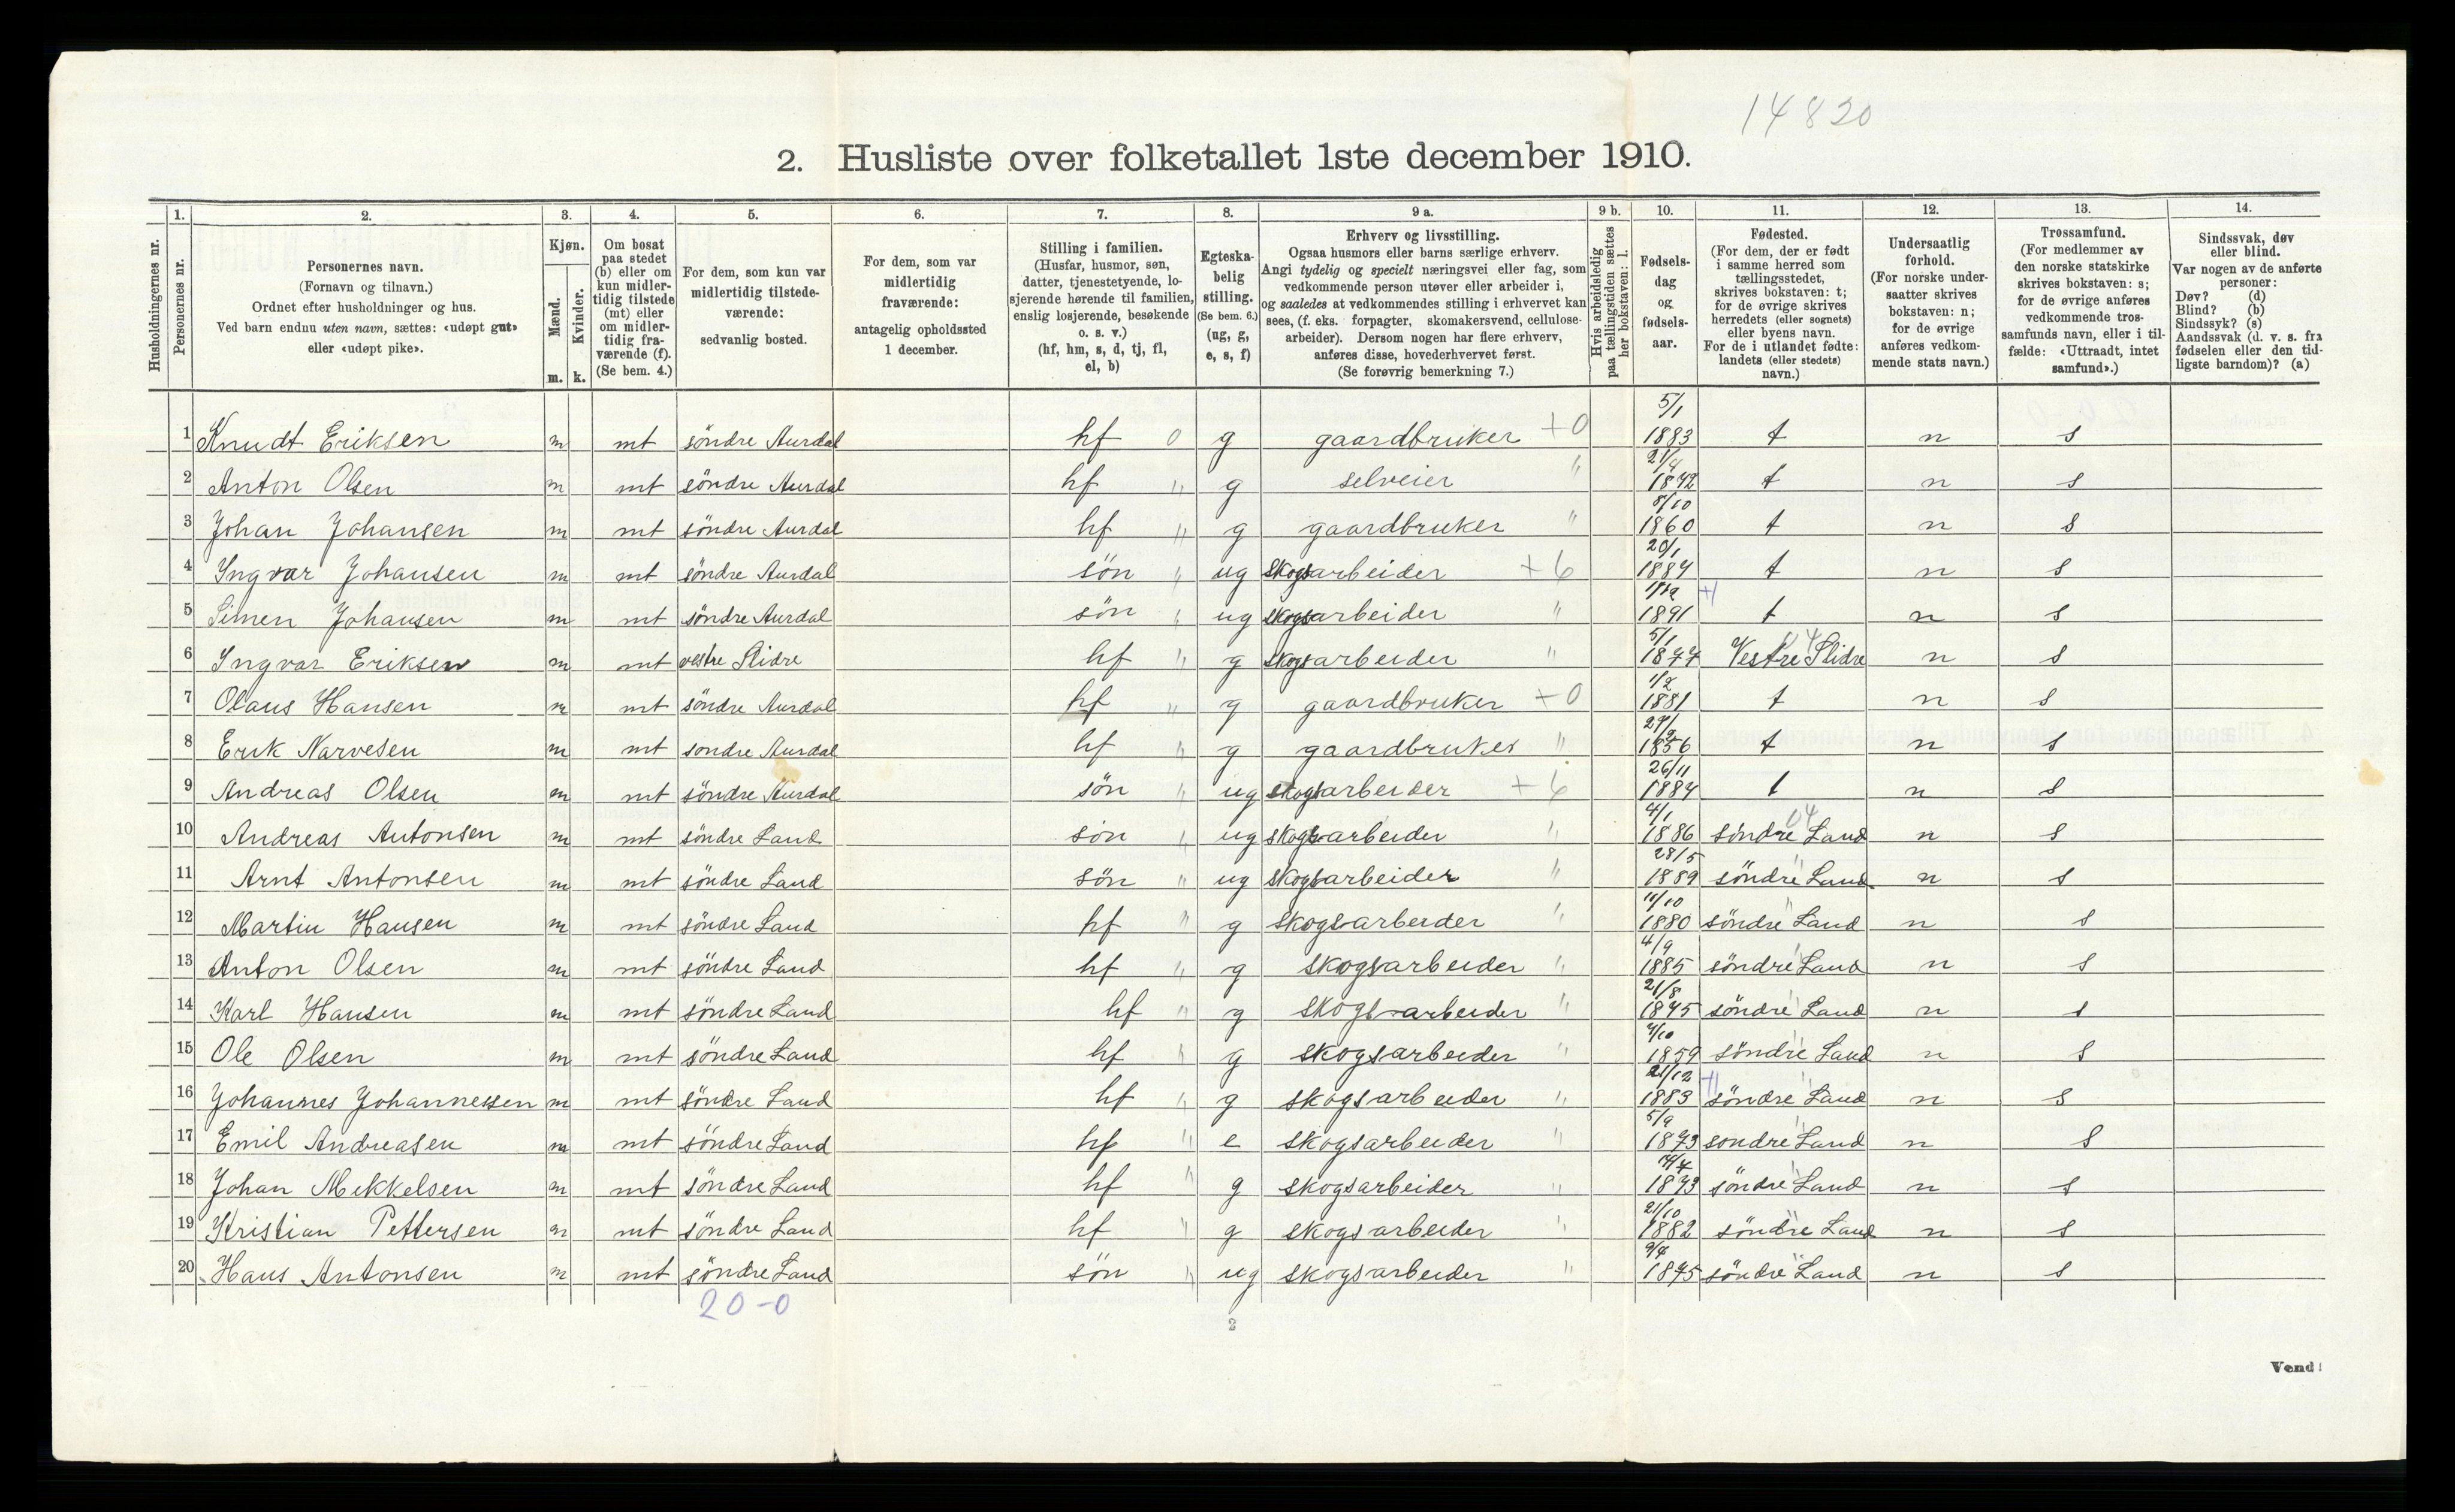 14820
2. Husliste over folketallet 1ste december 1910.
1. 2. 3. 4. 5. 6. 7. 8. 9 a. 9 b. 10. 11. 12. 13. 14.
Husholdningernes nr.
Personernes nr.
Personernes navn.
(Fornavn og tilnavn.)
Ordnet efter husholdninger og hus.
Ved barn endnu uten navn, sættes: «udøpt gut»
eller «udøpt pike».
Kjøn.
Mænd.
Kvinder.
m. k.
Om bosat
paa stedet
(b) eller om
kun midler-
tidig tilstede
(mt) eller
om midler-
tidig fra-
værende (f).
(Se bem. 4.)
For dem, som kun var
midlertidig tilstede-
værende:
sedvanlig bosted.
For dem, som var
midlertidig
fraværende:
antagelig opholdssted
1 december.
Stilling i familien.
(Husfar, husmor, søn,
datter, tjenestetyende, lo-
sjerende hørende til familien,
enslig losjerende, besøkende
o. s. v.)
(hf, hm, s, d, tj, fl,
el, b)
Egteska-
belig
stilling.
(Se bem. 6.)
(ug, g,
e, s, f)
Erhverv og livsstilling.
Ogsaa husmors eller barns særlige erhverv.
Angi tydelig og specielt næringsvei eller fag, som
vedkommende person utøver eller arbeider i,
og saaledes at vedkommendes stilling i erhvervet kan
sees, (f. eks. forpagter, skomakersvend, cellulose-
arbeider). Dersom nogen har flere erhverv,
anføres disse, hovederhvervet først.
(Se forøvrig bemerkning 7.)
Hvis arbeidsledig
paa tællingstiden sættes
her bokstaven: l.
Fødsels-
dag
og
fødsels-
aar.
Fødested.
(For dem, der er født
i samme herred som
tællingsstedet,
skrives bokstaven: t;
for de øvrige skrives
herredets (eller sognets)
eller byens navn.
For de i utlandet fødte:
landets (eller stedets)
navn.)
Undersaatlig
forhold.
(For norske under-
saatter skrives
bokstaven: n;
for de øvrige
anføres vedkom-
mende stats navn.)
Trossamfund.
(For medlemmer av
den norske statskirke
skrives bokstaven: s;
for de øvrige anføres
vedkommende tros-
samfunds navn, eller i til-
fælde: «Uttraadt, intet
samfund».)
Sindssvak, døv
eller blind.
Var nogen av de anførte
personer:
Døv? (d)
Blind? (b)
Sindssyk? (s)
Aandssvak (d. v. s. fra
fødselen eller den tid-
ligste barndom)? (a)
1 Knudt Eriksen m mt söndre Aurdal hf 0 g gaardbruker +0 5/1 1883 t n s
2 Anton Olsen m mt söndre Aurdal hf " g selveier " 21/4 1842 t n s
3 Johan Johansen m mt söndre Aurdal hf " g gaardbruker " 8/10 1860 t n s
4 Ingvar Johansen m mt söndre Aurdal sön " ug skogsarbeider +6 20/1 1884 t n s
5 Simen Johansen m mt söndre Aurdal sön " ug skogsarbeider " 1891 t n s
6 Ingvar Eriksen m mt vestre Slidre hf " g skogsarbeider " 5/1 1877 Vestre Slidre n s
7 Olaus Hansen m mt söndre Aurdal hf " g gaardbruker +0 1/2 1881 t n s
8 Erik Narvesen m mt sondre Aurdal hf " g gaardbruker " 1856 t n s
9 Andreas Olsen m mt söndre Aurdal sön " ug skogsarbeider +6 26/11 1884 t n s
10 Andreas Antonsen m mt söndre Land sön " ug skogsarbeider " 4/1 1886 söndre Land n s
11 Arnt Antonsen m mt söndre Land sön " ug skogsarbeider " 28/5 1889 söndre Land n s
12 Martin Hansen m mt söndre Land hf " g skogsarbeider " 11/10 1880 söndre Land n s
13 Anton Olsen m mt söndre Land hf " g skogsarbeider " 4/9 1885 söndre Land n s
14 Karl Hansen m mt söndre Land hf " g skogsarbeider " 21/8 1875 söndre Land n s
15 Ole Olsen m mt söndre Land hf " g skogsarbeider " 1859 söndre Land n s
16 Johannes Johannessen m mt söndre Land hf " g skogsarbeider " 21/12 1883 söndre Land n s
17 Emil Andreasen m mt söndre Land hf " e skogsarbeider " 5/9 1873 sondre Land n s
18 Johan Mekkelsen m mt söndre Land hf " g skogsarbeider " 1873 söndre Land n s
19 Kristian Pettersen m mt söndre Land hf " g skogsarbeider " 21/10 1882 söndre Land n s
20 Hans Antonsen m mt söndre Land sön " ug skogsarbeider " 9/4 1875 söndre Land n s
20-0
2
Vend!